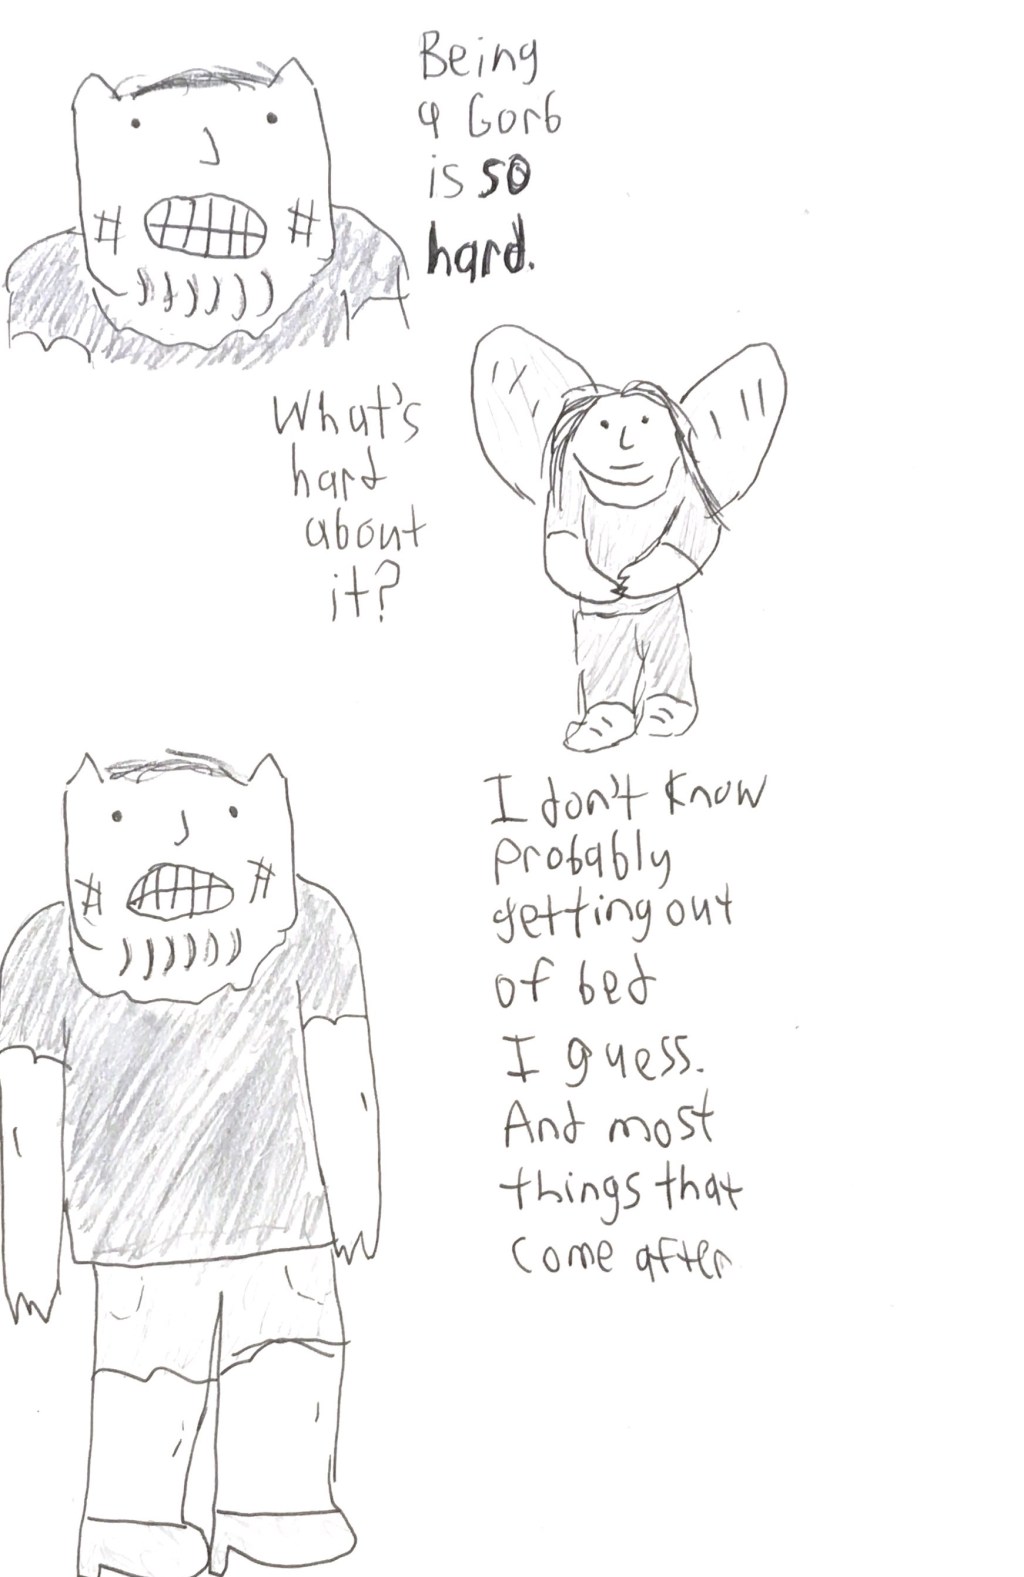 Being
a Gorb
is so
hard.
What's
hard
about
it?
I don't know
probably
getting out
of bed
I guess.
And most
things that
come after